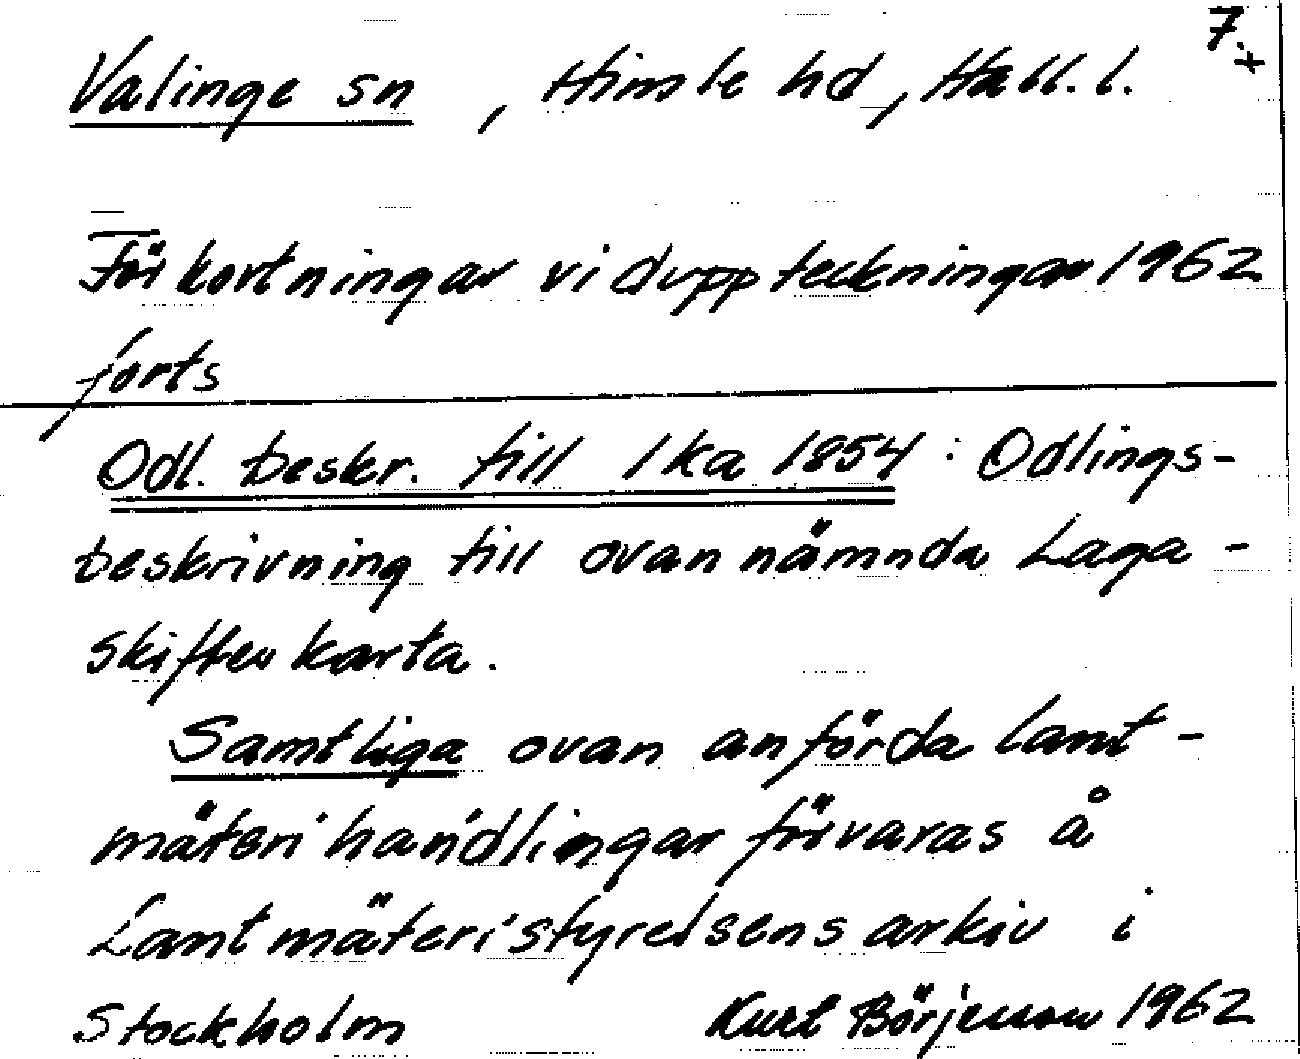 7.+
Valinge sn , Himle hd, Hall. l.
Förkortningar vid uppteckningar 1962
forts
Odl. beskr. till lka 1854 : Odlings-
beskrivning till ovan nämnda Laga-
skifteskarta.
Samtliga ovan anförda lant-
mäterihandlingar förvaras å
Lantmäteristyrelsens arkiv i
Stockholm Kurt Börjesson 1962